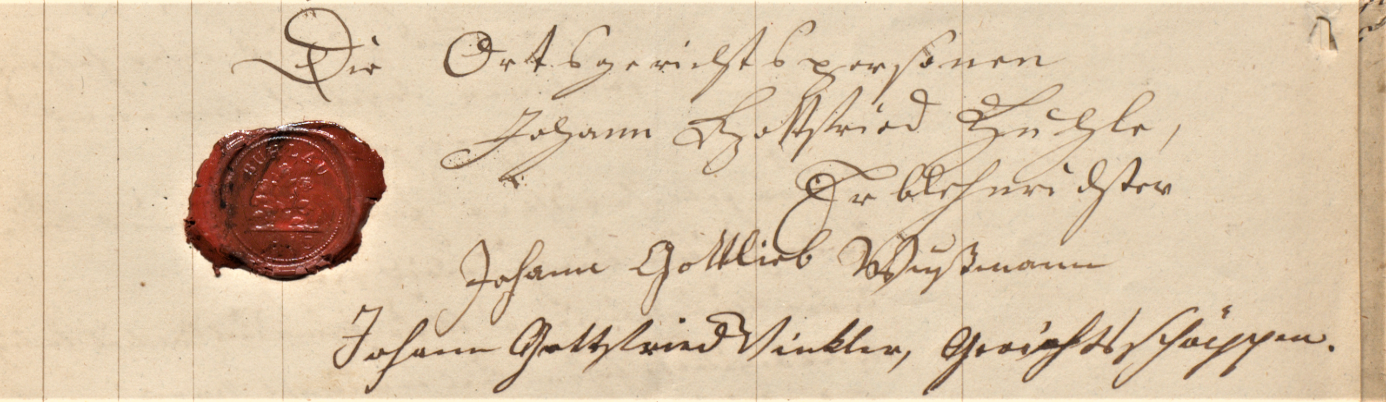 Die Ortsgerichtspersonen
Johann Gottfried Kuhle,
Erblehnrichter
Johann Gottlieb Wußmann
Johann Gottfried Winkler, Gerichtsschöppen.